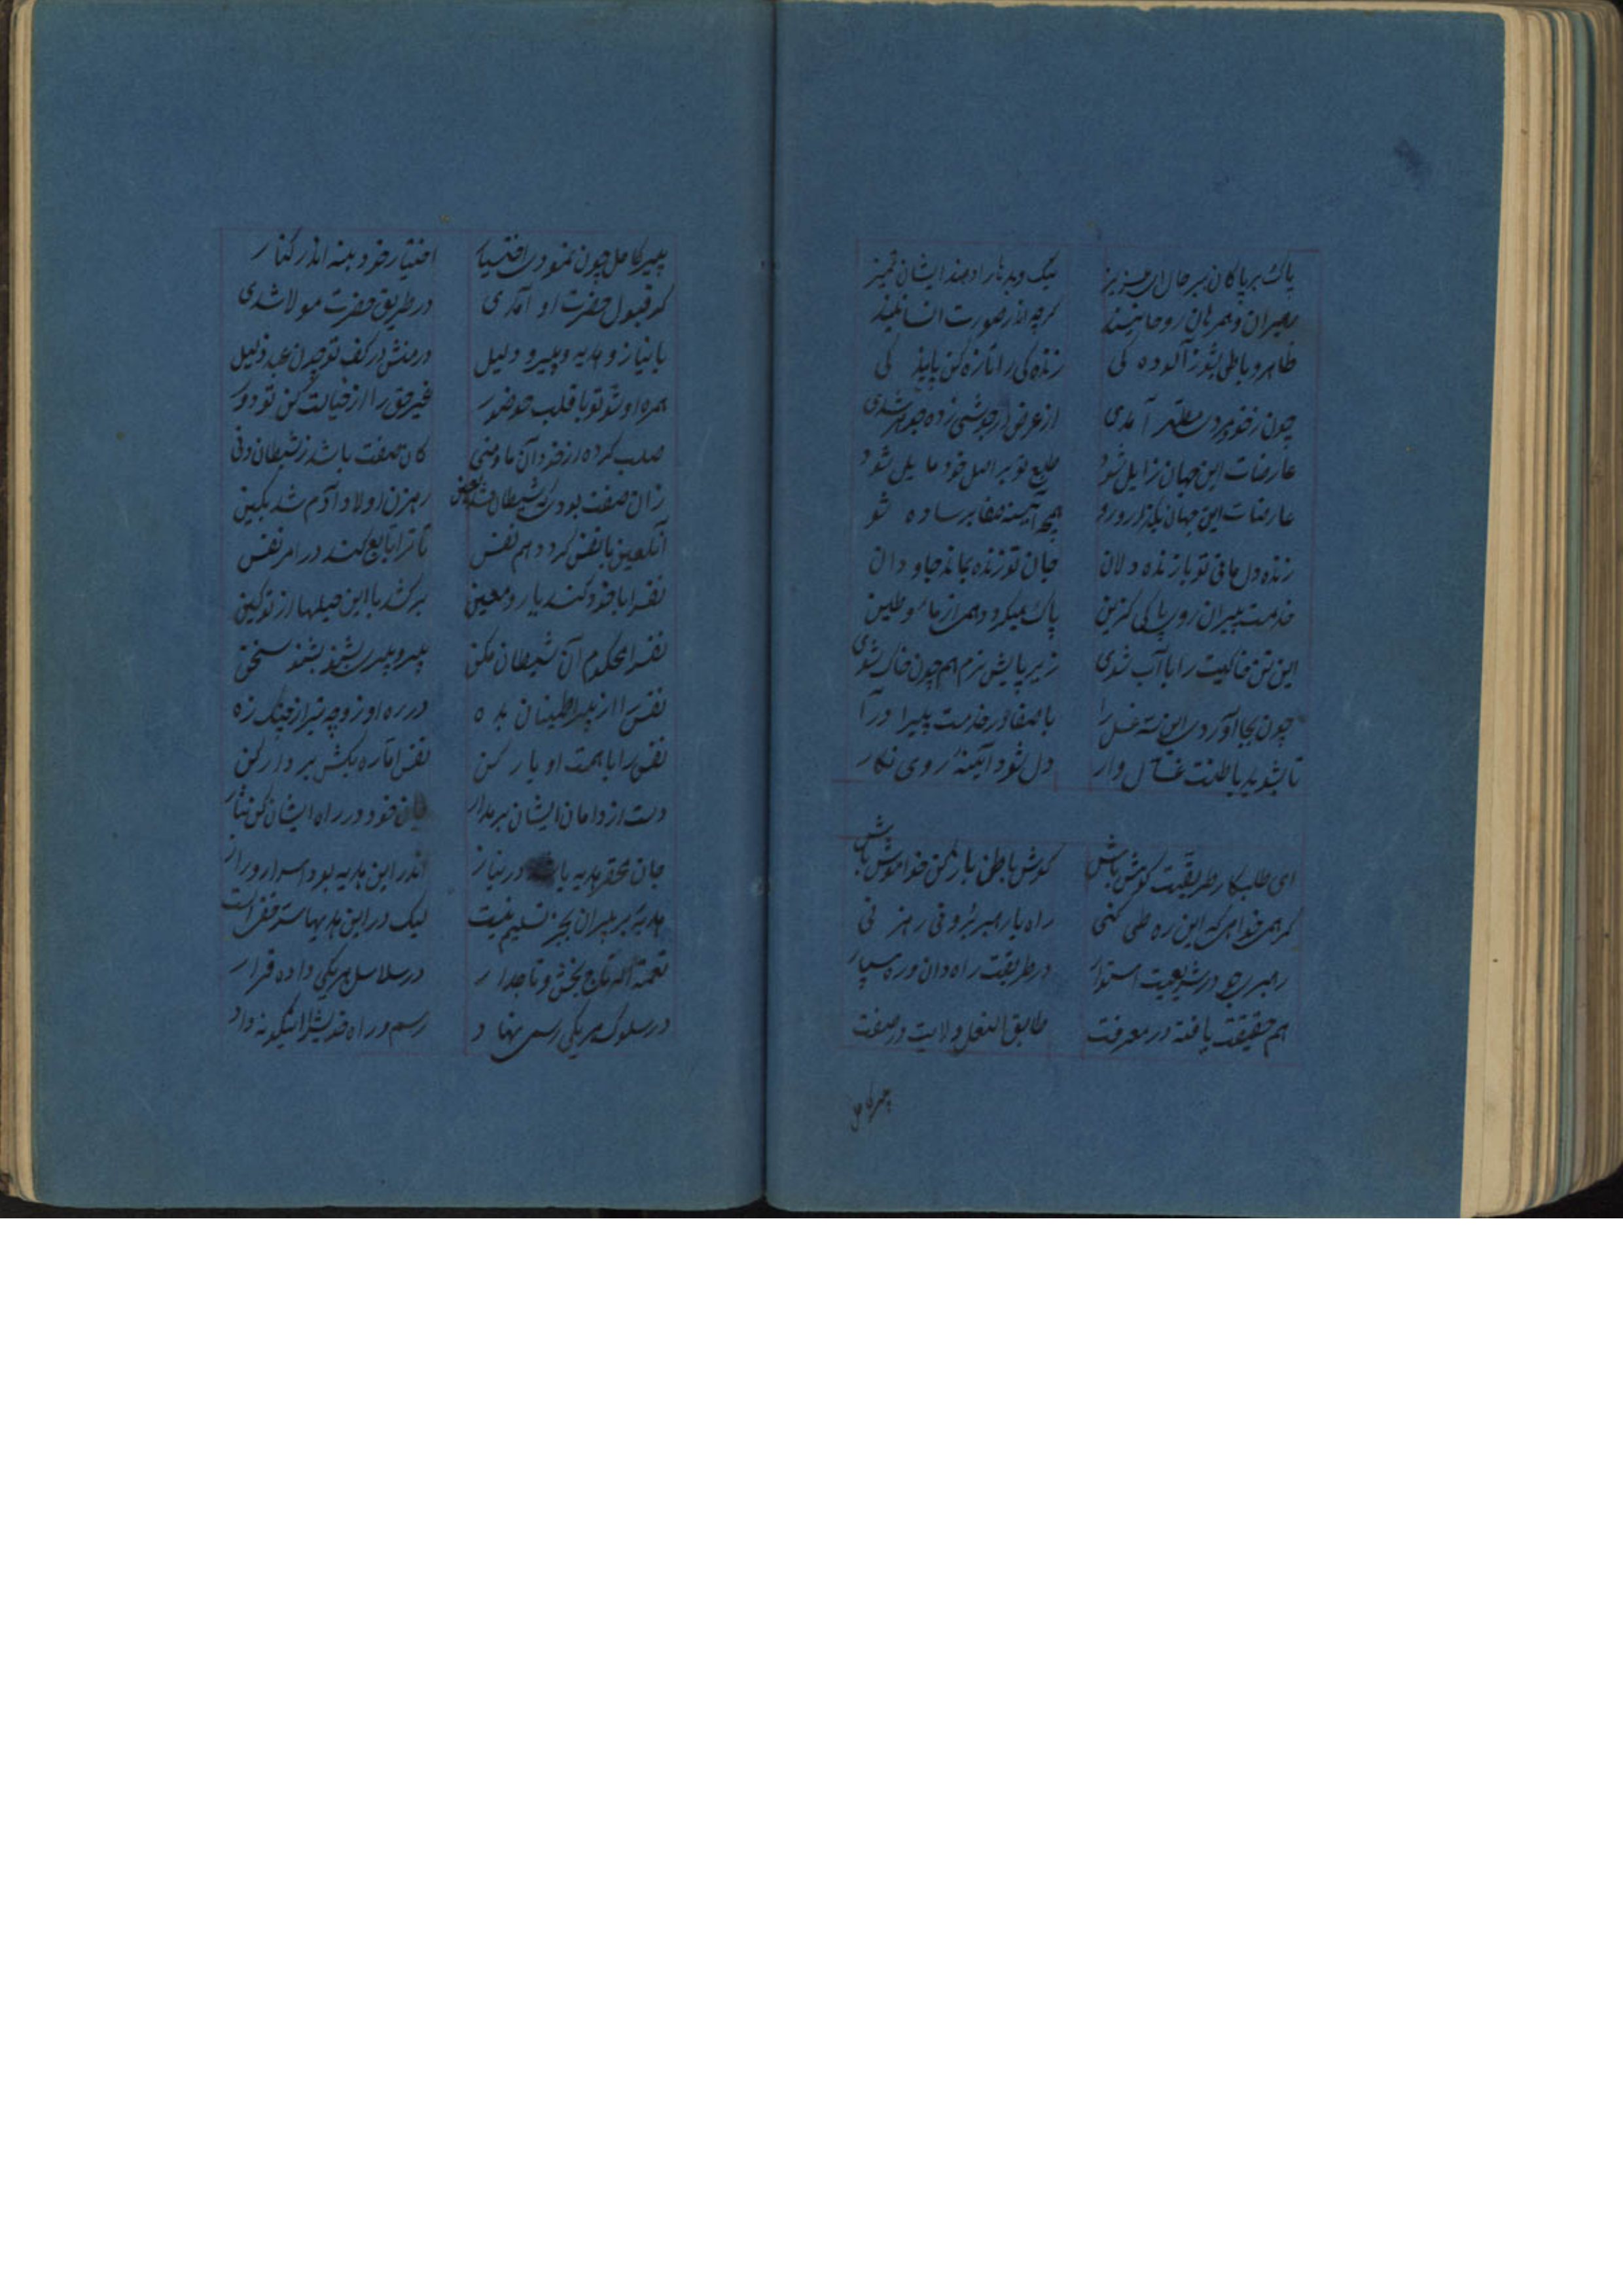 پاک بر پاکان سپر جان ای عزیز نیک و بد را دهند ایشان تمیز
رهبران و همرهان روحانیند گرچه اندر صورت انسانیند
ظاهر و باطن بشو ز آلوده کی زنده کی را تازه کن پاینده کی
چون ز خود آمدی از عرض جوهر شدی
عارضات این جهان زایل شود طبع تو بر اصل خود مایل شود
عارضات این جهان بگذار و رو همچو آیینه صفا بر ساده شو
زنده دل مانی تو با زنده دلان جان تو زنده بماند جاودان
خدمت پیران رو پاکی گزین پاک میگرد هم از ماء و طین
این تن خاکیت را با آب شوی زیر پایش نرم هم چون خاک شوی
چون بجا آوردی این غسل را با صفا در خدمت پیرا درآ
تا بشوید باطنت غسال وار دل شود آئینه روی نگار
ای طلبکار طریقت گوش باش گوش باطن باز کن خواموش باش
گر همی خواهی که این ره طی کنی راه با رهبر برو نی رهزنی
رهبری جو در شریعت استوار در طریقت راه دان و ره سپار
هم حقیقت یافته در معرفت طابق النعل ولایت در صفت
پیر کامل
پیر کامل چون نمودی اختیار اختیار خود بنه اندر کنار
گر قبول حضرت او آمدی در طریق حضرت مولا شدی
با نیاز و هدیه و پیر و دلیل در کف تو چون عبد ذلیل
همره او شو تو با قلب حضور غیر حق را از خیالت کن تو دور
صلب کرده از خود آن ما و منی کان صفت باشد ز شیطان دنی
زان صفت بود که شیطان لعین رهزن اولاد آدم شد بکین
آن لعین با نفس گردد هم نفس تا ترا تابع کند در امر نفس
نفس را با خود کند یار و معین برکشد با این حیلها از تو کین
نفس را محکوم آن شیطان مکن پیرو پیر بشنو سخن
نفس را از پیر اطمینان بده در ره او زوجه نیز از چنگ زه
نفس را با همت او یار کن نفس اماره بکش بر دار کن
دست از دامان ایشان بر مدار جان خود در راه ایشان کن نثار
جان محقر هدیه باشد در نیاز اندر این هدیه بود اسرار و راز
هدیه بر پیران بجز تسلیم نیست لیک در این هدیها
نعمة الله تاج بخش و تاجدار در سلاسل هر یکی داده قرار
در سلوک هر یکی رسمی نهاد رسم و راه اینگونه داد